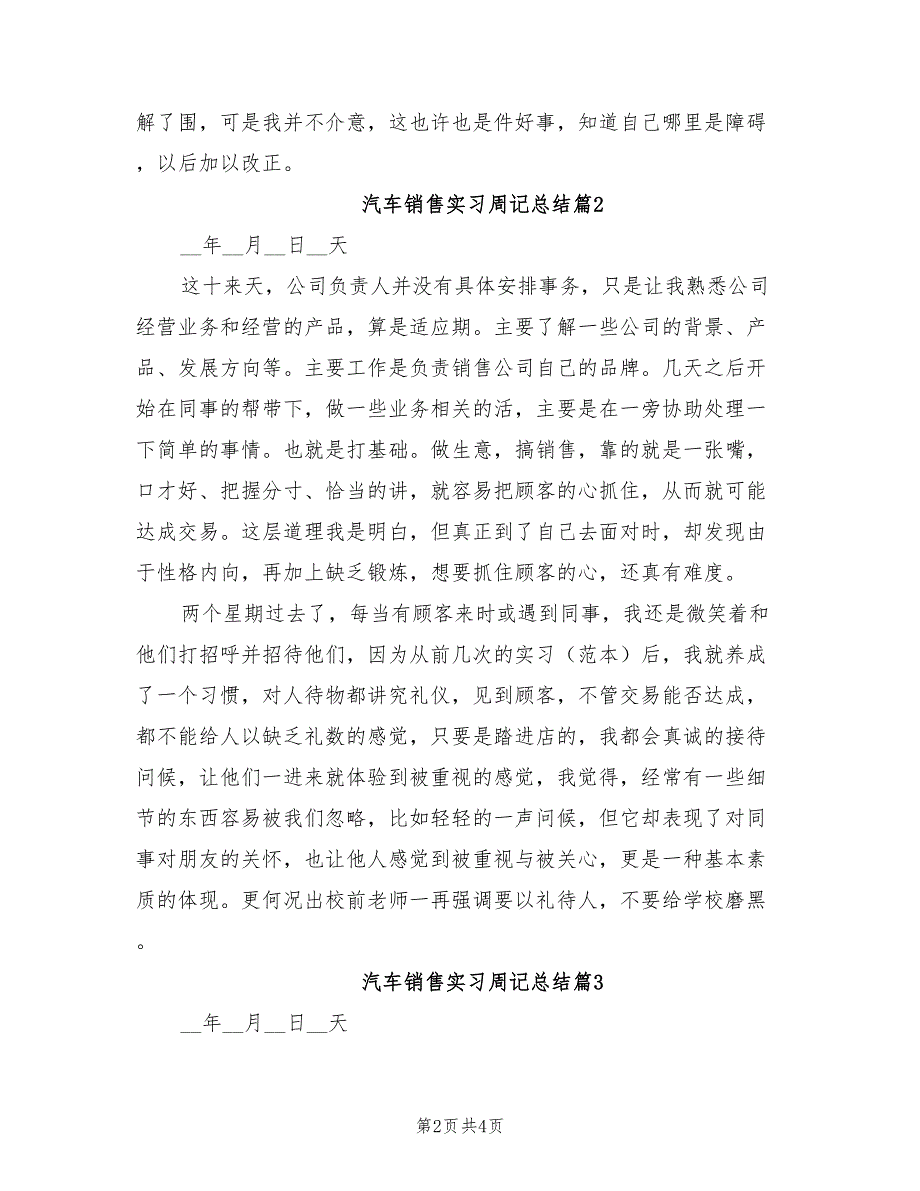 解了围，可是我并不介意，这也许也是件好事，知道自己哪里是障碍
，以后加以改正。
汽车销售实习周记总结篇2
__年__月__日__天
这十来天，公司负责人并没有具体安排事务，只是让我熟悉公司
经营业务和经营的产品，算是适应期。主要了解一些公司的背景、产
品、发展方向等。主要工作是负责销售公司自己的品牌。几天之后开
始在同事的帮带下，做一些业务相关的活，主要是在一旁协助处理一
下简单的事情。也就是打基础。做生意，搞销售，靠的就是一张嘴，
口才好、把握分寸、恰当的讲，就容易把顾客的心抓住，从而就可能
达成交易。这层道理我是明白，但真正到了自己去面对时，却发现由
于性格内向，再加上缺乏锻炼，想要抓住顾客的心，还真有难度。
两个星期过去了，每当有顾客来时或遇到同事，我还是微笑着和
他们打招呼并招待他们，因为从前几次的实习（范本）后，我就养成
了一个习惯，对人待物都讲究礼仪，见到顾客，不管交易能否达成，
都不能给人以缺乏礼数的感觉，只要是踏进店的，我都会真诚的接待
问候，让他们一进来就体验到被重视的感觉，我觉得，经常有一些细
节的东西容易被我们忽略，比如轻轻的一声问候，但它却表现了对同
事对朋友的关怀，也让他人感觉到被重视与被关心，更是一种基本素
质的体现。更何况出校前老师一再强调要以礼待人，不要给学校磨黑
。
汽车销售实习周记总结篇3
__年__月__日__天
第2页 共4页